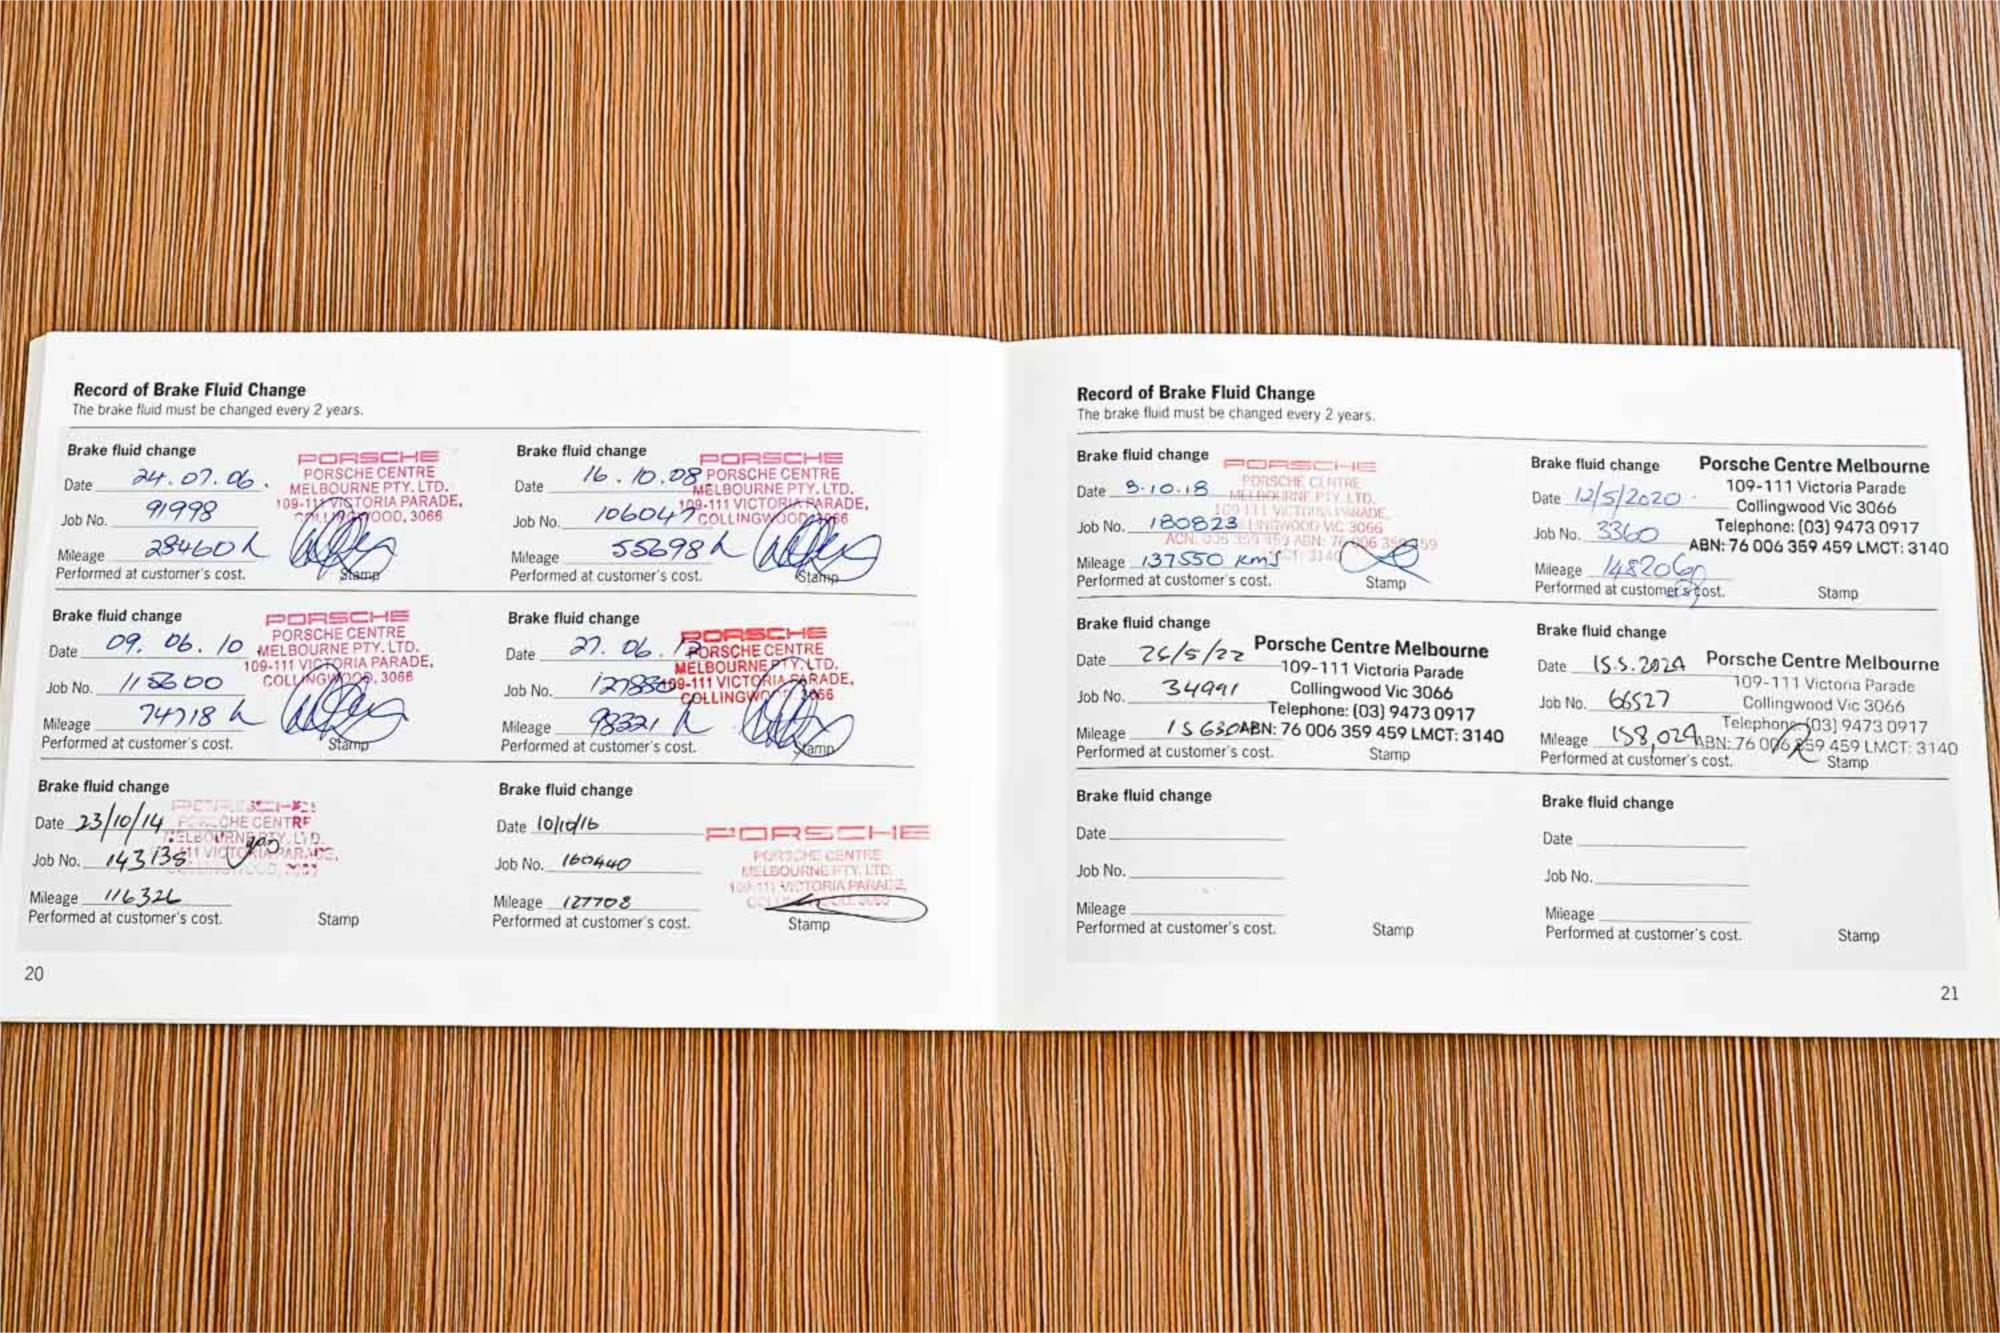 Record of Brake Fluid Change
The brake fluid must be changed every 2 years.
Brake fluid change
Date 24.07.06.
Job No. 91998
Mileage 28460 k
Performed at customer's cost.
Stamp
PORSCHE
PORSCHE CENTRE
MELBOURNE PTY. LTD.
109-111 VICTORIA PARADE,
COLLINGWOOD, 3066
Brake fluid change
Date 16.10.08
Job No. 106047
Mileage 55698 k
Performed at customer's cost.
Stamp
PORSCHE
PORSCHE CENTRE
MELBOURNE PTY. LTD.
109-111 VICTORIA PARADE,
COLLINGWOOD, 3066
Brake fluid change
Date 09.06.10
Job No.
Mileage 74718 k
Performed at customer's cost.
Stamp
PORSCHE
PORSCHE CENTRE
MELBOURNE PTY. LTD.
109-111 VICTORIA PARADE,
COLLINGWOOD, 3066
Brake fluid change
Date 27.06.
Job No.
Mileage 98321 k
Performed at customer's cost.
Stamp
PORSCHE
PORSCHE CENTRE
MELBOURNE PTY. LTD.
109-111 VICTORIA PARADE,
COLLINGWOOD, 3066
Brake fluid change
Date 23/10/14
Job No. 143138
Mileage 116326
Performed at customer's cost.
Stamp
PORSCHE
PORSCHE CENTRE
MELBOURNE PTY. LTD.
VICTORIA PARADE,
COLLINGWOOD, 3066
Brake fluid change
Date 10/10/16
Job No. 160440
Mileage 127708
Performed at customer's cost.
Stamp
PORSCHE
PORSCHE CENTRE
MELBOURNE PTY. LTD.
109-111 VICTORIA PARADE,
COLLINGWOOD, 3066
20
Record of Brake Fluid Change
The brake fluid must be changed every 2 years.
Brake fluid change
Date 9.10.18
Job No. 180823
Mileage 137550 kms
Performed at customer's cost.
Stamp
PORSCHE
PORSCHE CENTRE
MELBOURNE PTY. LTD.
109-111 VICTORIA PARADE,
COLLINGWOOD VIC 3066
ACN: 006 359 459 ABN: 76 006 359 459
LMCT: 3140
Brake fluid change
Date 12/5/2020
Job No. 3360
Mileage 148206
Performed at customer's cost.
Stamp
Porsche Centre Melbourne
109-111 Victoria Parade
Collingwood Vic 3066
Telephone: (03) 9473 0917
ABN: 76 006 359 459 LMCT: 3140
Brake fluid change
Date 26/5/22
Job No. 34991
Mileage
Performed at customer's cost.
Stamp
Porsche Centre Melbourne
109-111 Victoria Parade
Collingwood Vic 3066
Telephone: (03) 9473 0917
ABN: 76 006 359 459 LMCT: 3140
Brake fluid change
Date 15.5.2024
Job No. 66527
Mileage 158,024
Performed at customer's cost.
Stamp
Porsche Centre Melbourne
109-111 Victoria Parade
Collingwood Vic 3066
Telephone: (03) 9473 0917
ABN: 76 006 359 459 LMCT: 3140
Brake fluid change
Date
Job No.
Mileage
Performed at customer's cost.
Stamp
Brake fluid change
Date
Job No.
Mileage
Performed at customer's cost.
Stamp
21